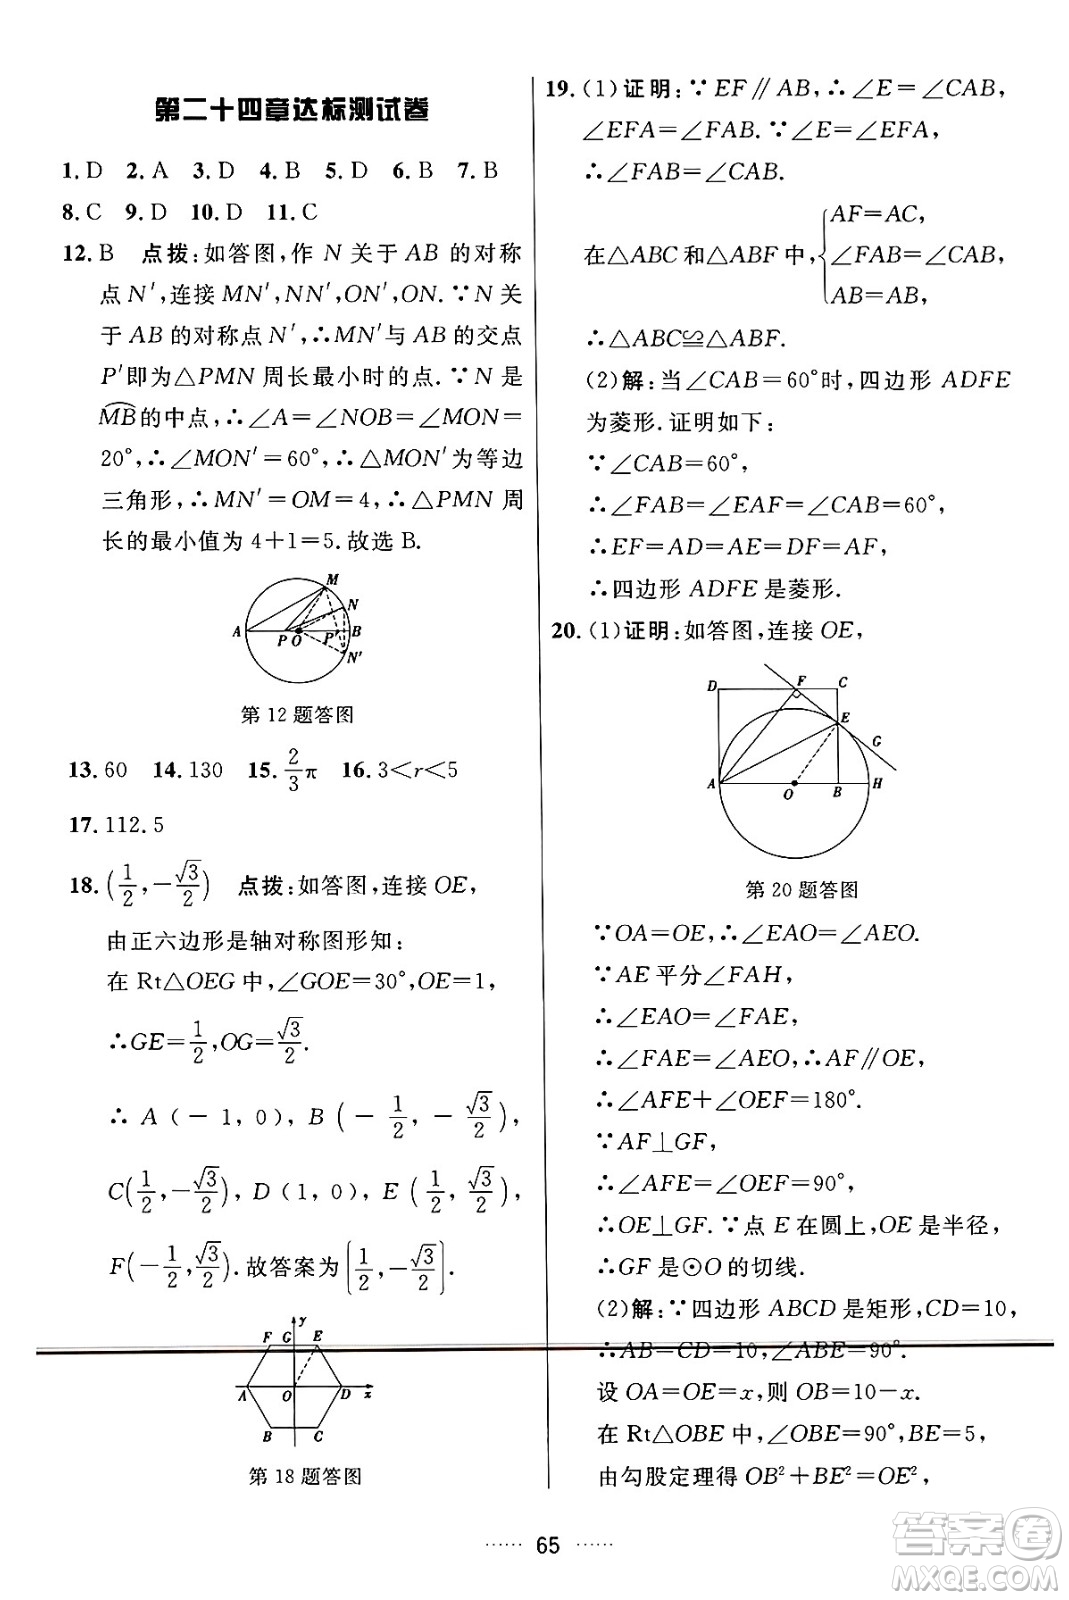 第二十四章达标测试卷
1. D 2. A 3. D 4. B 5. D 6. B 7. B
8. C 9. D 10. D 11. C
12. B 点拨:如答图,作 N 关于 AB 的对称
点 N′,连接 MN′,NN′,ON′,ON. ∵N 关
于 AB 的对称点 N′,∴MN′与 AB 的交点
P′即为△PMN 周长最小时的点. ∵N 是
M͡B的中点,∴∠A=∠NOB=∠MON=
20°,∴∠MON′=60°,∴△MON′为等边
三角形,∴MN′=OM=4,∴△PMN 周
长的最小值为 4+1=5. 故选 B.
M
N
A P O P′ B
N′
第 12 题答图
13. 60 14. 130 15. 2/3 π 16. 3<r<5
17. 112. 5
18. (1/2, -√3/2) 点拨:如答图,连接 OE,
由正六边形是轴对称图形知:
在 Rt△OEG 中,∠GOE=30°,OE=1,
∴GE=1/2,OG=√3/2.
∴ A (-1,0), B (-1/2, -√3/2),
C(1/2, -√3/2), D (1,0), E (1/2, √3/2),
F(-1/2, √3/2). 故答案为(1/2, -√3/2).
y
F G E
A O D x
B C
第 18 题答图
19. (1)证明:∵EF∥AB,∴∠E=∠CAB,
∠EFA=∠FAB. ∵∠E=∠EFA,
∴∠FAB=∠CAB.
在△ABC 和△ABF 中,{AF=AC,
∠FAB=∠CAB,
AB=AB,
∴△ABC≌△ABF.
(2)解:当∠CAB=60°时,四边形 ADFE
为菱形. 证明如下:
∵∠CAB=60°,
∴∠FAB=∠EAF=∠CAB=60°,
∴EF=AD=AE=DF=AF,
∴四边形 ADFE 是菱形.
20. (1)证明:如答图,连接 OE,
D F C
E
G
A O B H
第 20 题答图
∵OA=OE,∴∠EAO=∠AEO.
∵AE 平分∠FAH,
∴∠EAO=∠FAE,
∴∠FAE=∠AEO,∴AF∥OE,
∴∠AFE+∠OEF=180°.
∵AF⊥GF,
∴∠AFE=∠OEF=90°,
∴OE⊥GF. ∵点 E 在圆上,OE 是半径,
∴GF 是⊙O 的切线.
(2)解:∵四边形 ABCD 是矩形,CD=10,
∴AB=CD=10,∠ABE=90°.
设 OA=OE=x,则 OB=10-x.
在 Rt△OBE 中,∠OBE=90°,BE=5,
由勾股定理得 OB²+BE²=OE²,
······ 65 ······
答案卷
MXQE.COM